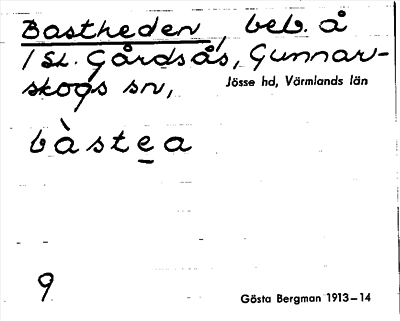 Bastheden, beb. å
1 St. Gårdsås, Gunnar-
skogs sn, Jösse hd, Värmlands län
bàstea
9
Gösta Bergman 1913–14